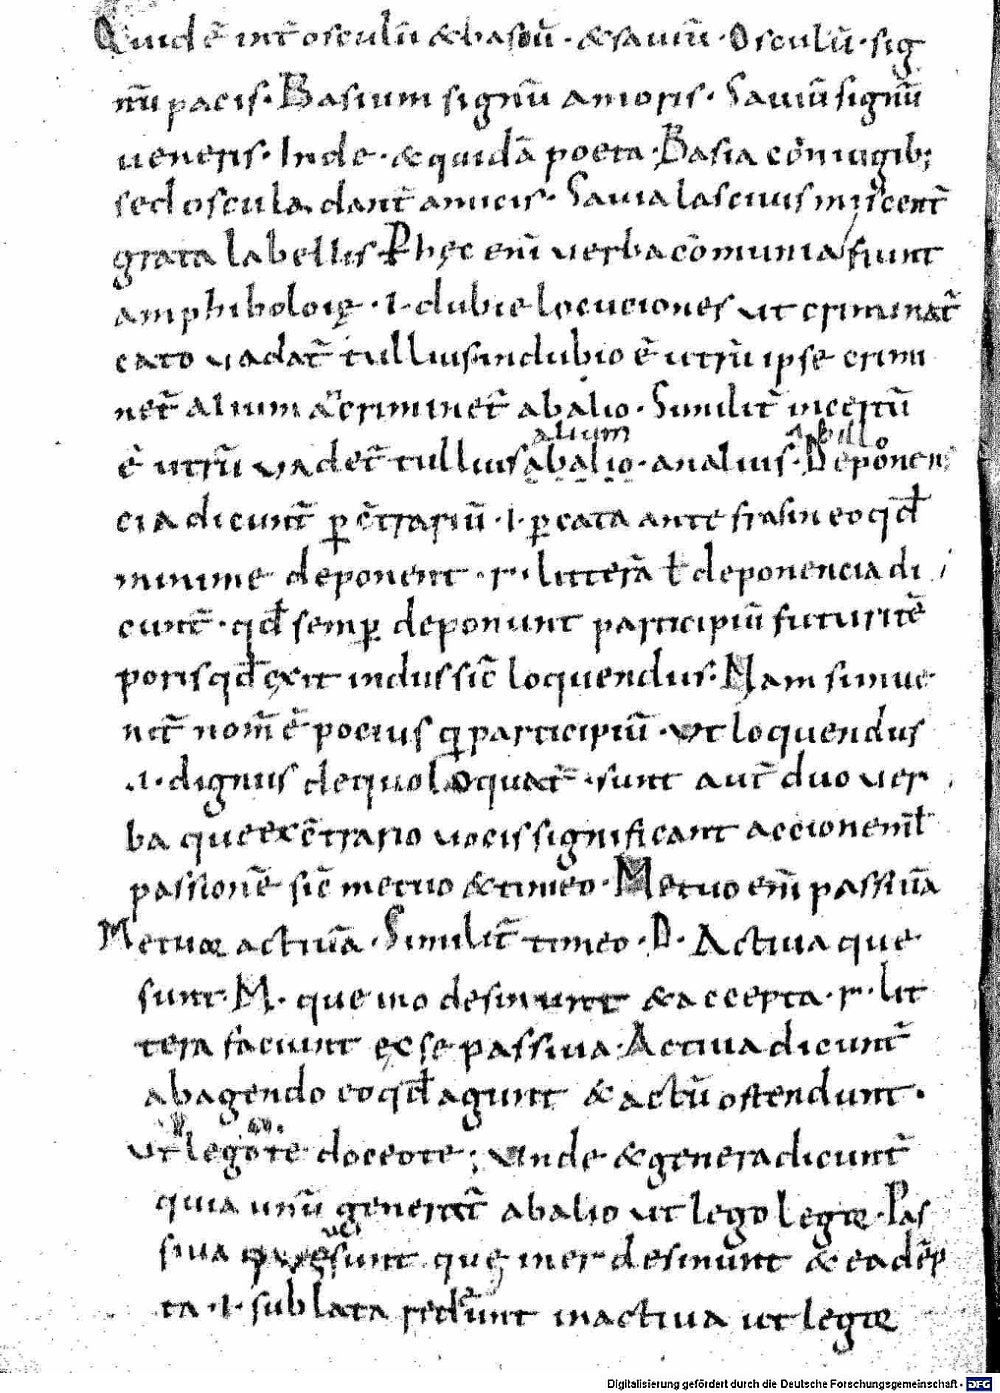 Quid ē int̄ osculū & basiū · & sauiū · Osculū · sig
nū pacis · Basium signū amoris · Sauiū signū
ueneris · Inde · & quidā poeta · Basia cōniugib;
sed oscula dant̄ amicis · Sauia lasciuis miscent̄
grata labellis · P hęc enī verba cōmunia fiunt
amphiboloię · i · dubie locuciones ut criminat̄
cato vadat̄ tullius in dubio ē utrū ipse crimi
net̄ alium & criminet̄ ab alio · Similit̄ incertū
alium ab illo
ē utrū vadet̄ tullius ab alio · an alius · Deponen
cia dicunt̄ ꝑ c̄trariū · i · ꝑ cata antefrasin eo qđ
minime deponent · r · litterā ł deponencia di
cunt̄ · qđ semꝑ deponunt participiū futuri tē
poris qđ exit in dus sic̄ loquendus · Nam si inue
nit̄ nom̄ ē pocius q̄ participiū · ut loquendus
· i · dignus de quo loquat̄ · sunt aut̄ duo ver
ba que ex c̄trario vocis significant accionem ł
passionē sic̄ metuo & timeo · Metuo enī passiuā
Metuor actiuā · Similit̄ timeo · D · Actiua que
sunt · M · que in o desinunt & accepta · r · lit
tera faciunt ex se passiua · Actiua dicunt̄
ab agendo eo qđ agunt & actū ostendunt ·
ut lego te doceo te ; unde & genera dicunt̄
quia unū generat̄ ab alio ut lego legor · Pas
siua que sunt quę in er desinunt & ea dēp
ta · i · sublata redeunt in actiua ut legor
Digitalisierung gefördert durch die Deutsche Forschungsgemeinschaft - DFG